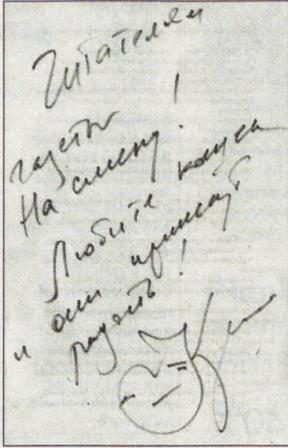 Читателям
газеты
На смену!
Любите кошек
и они принесут
радость!